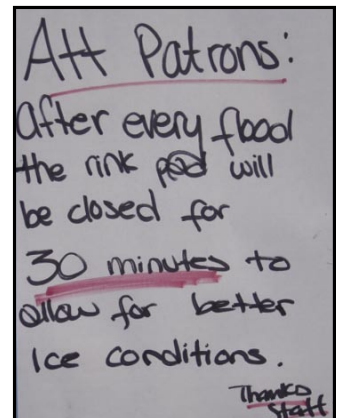 Att Patrons:
After every flood
the rink pad will
be closed for
30 minutes to
allow for better
Ice conditions.
Thanks
Staff